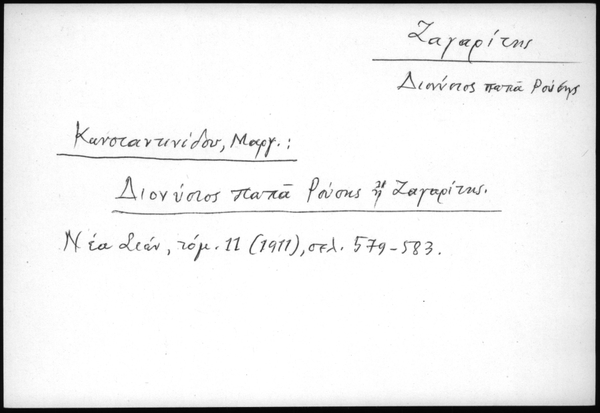 Ζαγαρίτης
Διονύσιος παπᾶ Ρούσης
Κωνσταντινίδου, Μαργ.:
Διονύσιος παπᾶ Ρούσης ἢ Ζαγαρίτης.
Νέα Σιών, τόμ. 11 (1911), σελ. 579-583.